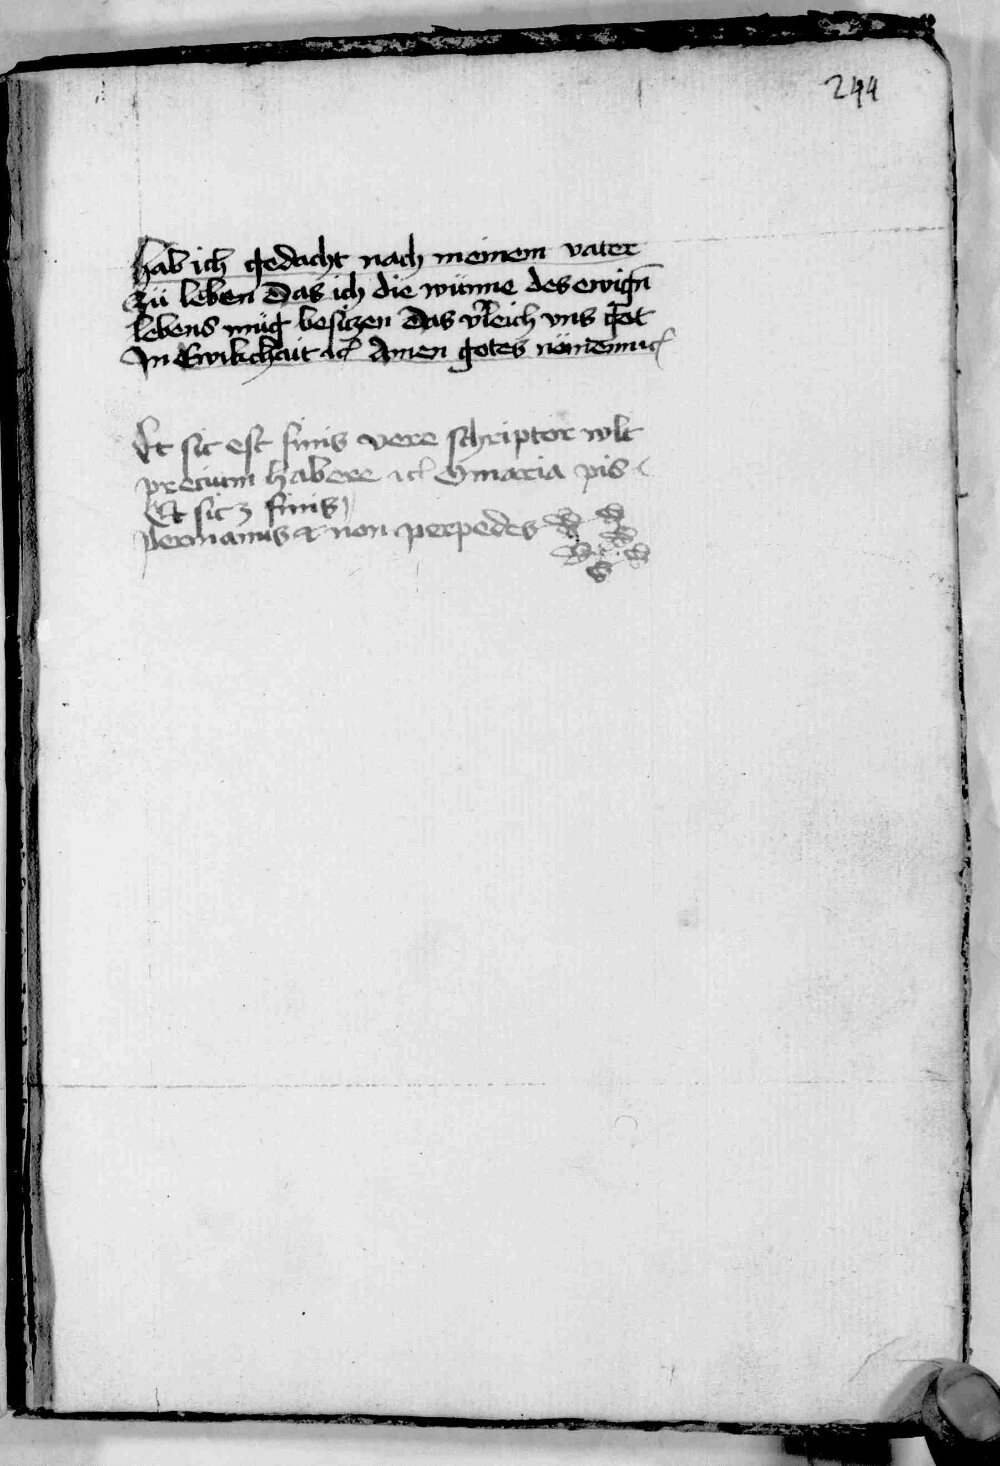 244
hab ich gedacht nach meinem vater
zü leben Das ich die wünne des ewign̄
lebens müg besiczen Das vleich vns got
In Ewikchait ꝛc Amen gotes nömen
Et sic est finis vere schriptor wlt
precium habere ꝛc O maria pis
Et sic ʒ finis
per manus ⁊ non per pedes